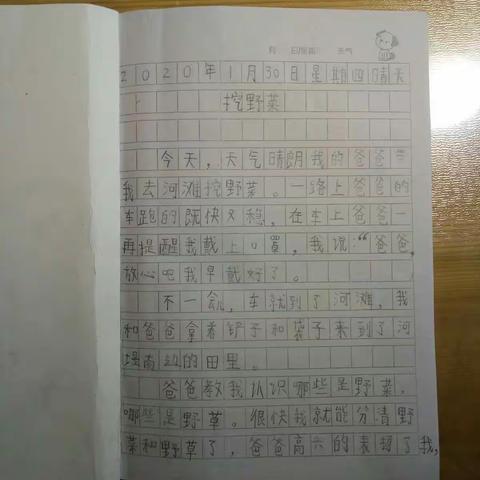 月 日 星期 天气
2020年1月30日星期四晴天
挖野菜
今天，天气晴朗我的爸爸带
我去河滩挖野菜。一路上爸爸的
车跑的既快又稳，在车上爸爸一
再提醒我戴上口罩，我说：“爸爸，
放心吧我早戴好了。
不一会儿，车就到了河滩，我
和爸爸拿着铲子和袋子来到了河
堤南边的田里。
爸爸教我认识哪些是野菜，
哪些是野草。很快我就能分清野
菜和野草了，爸爸高兴的表扬了我，